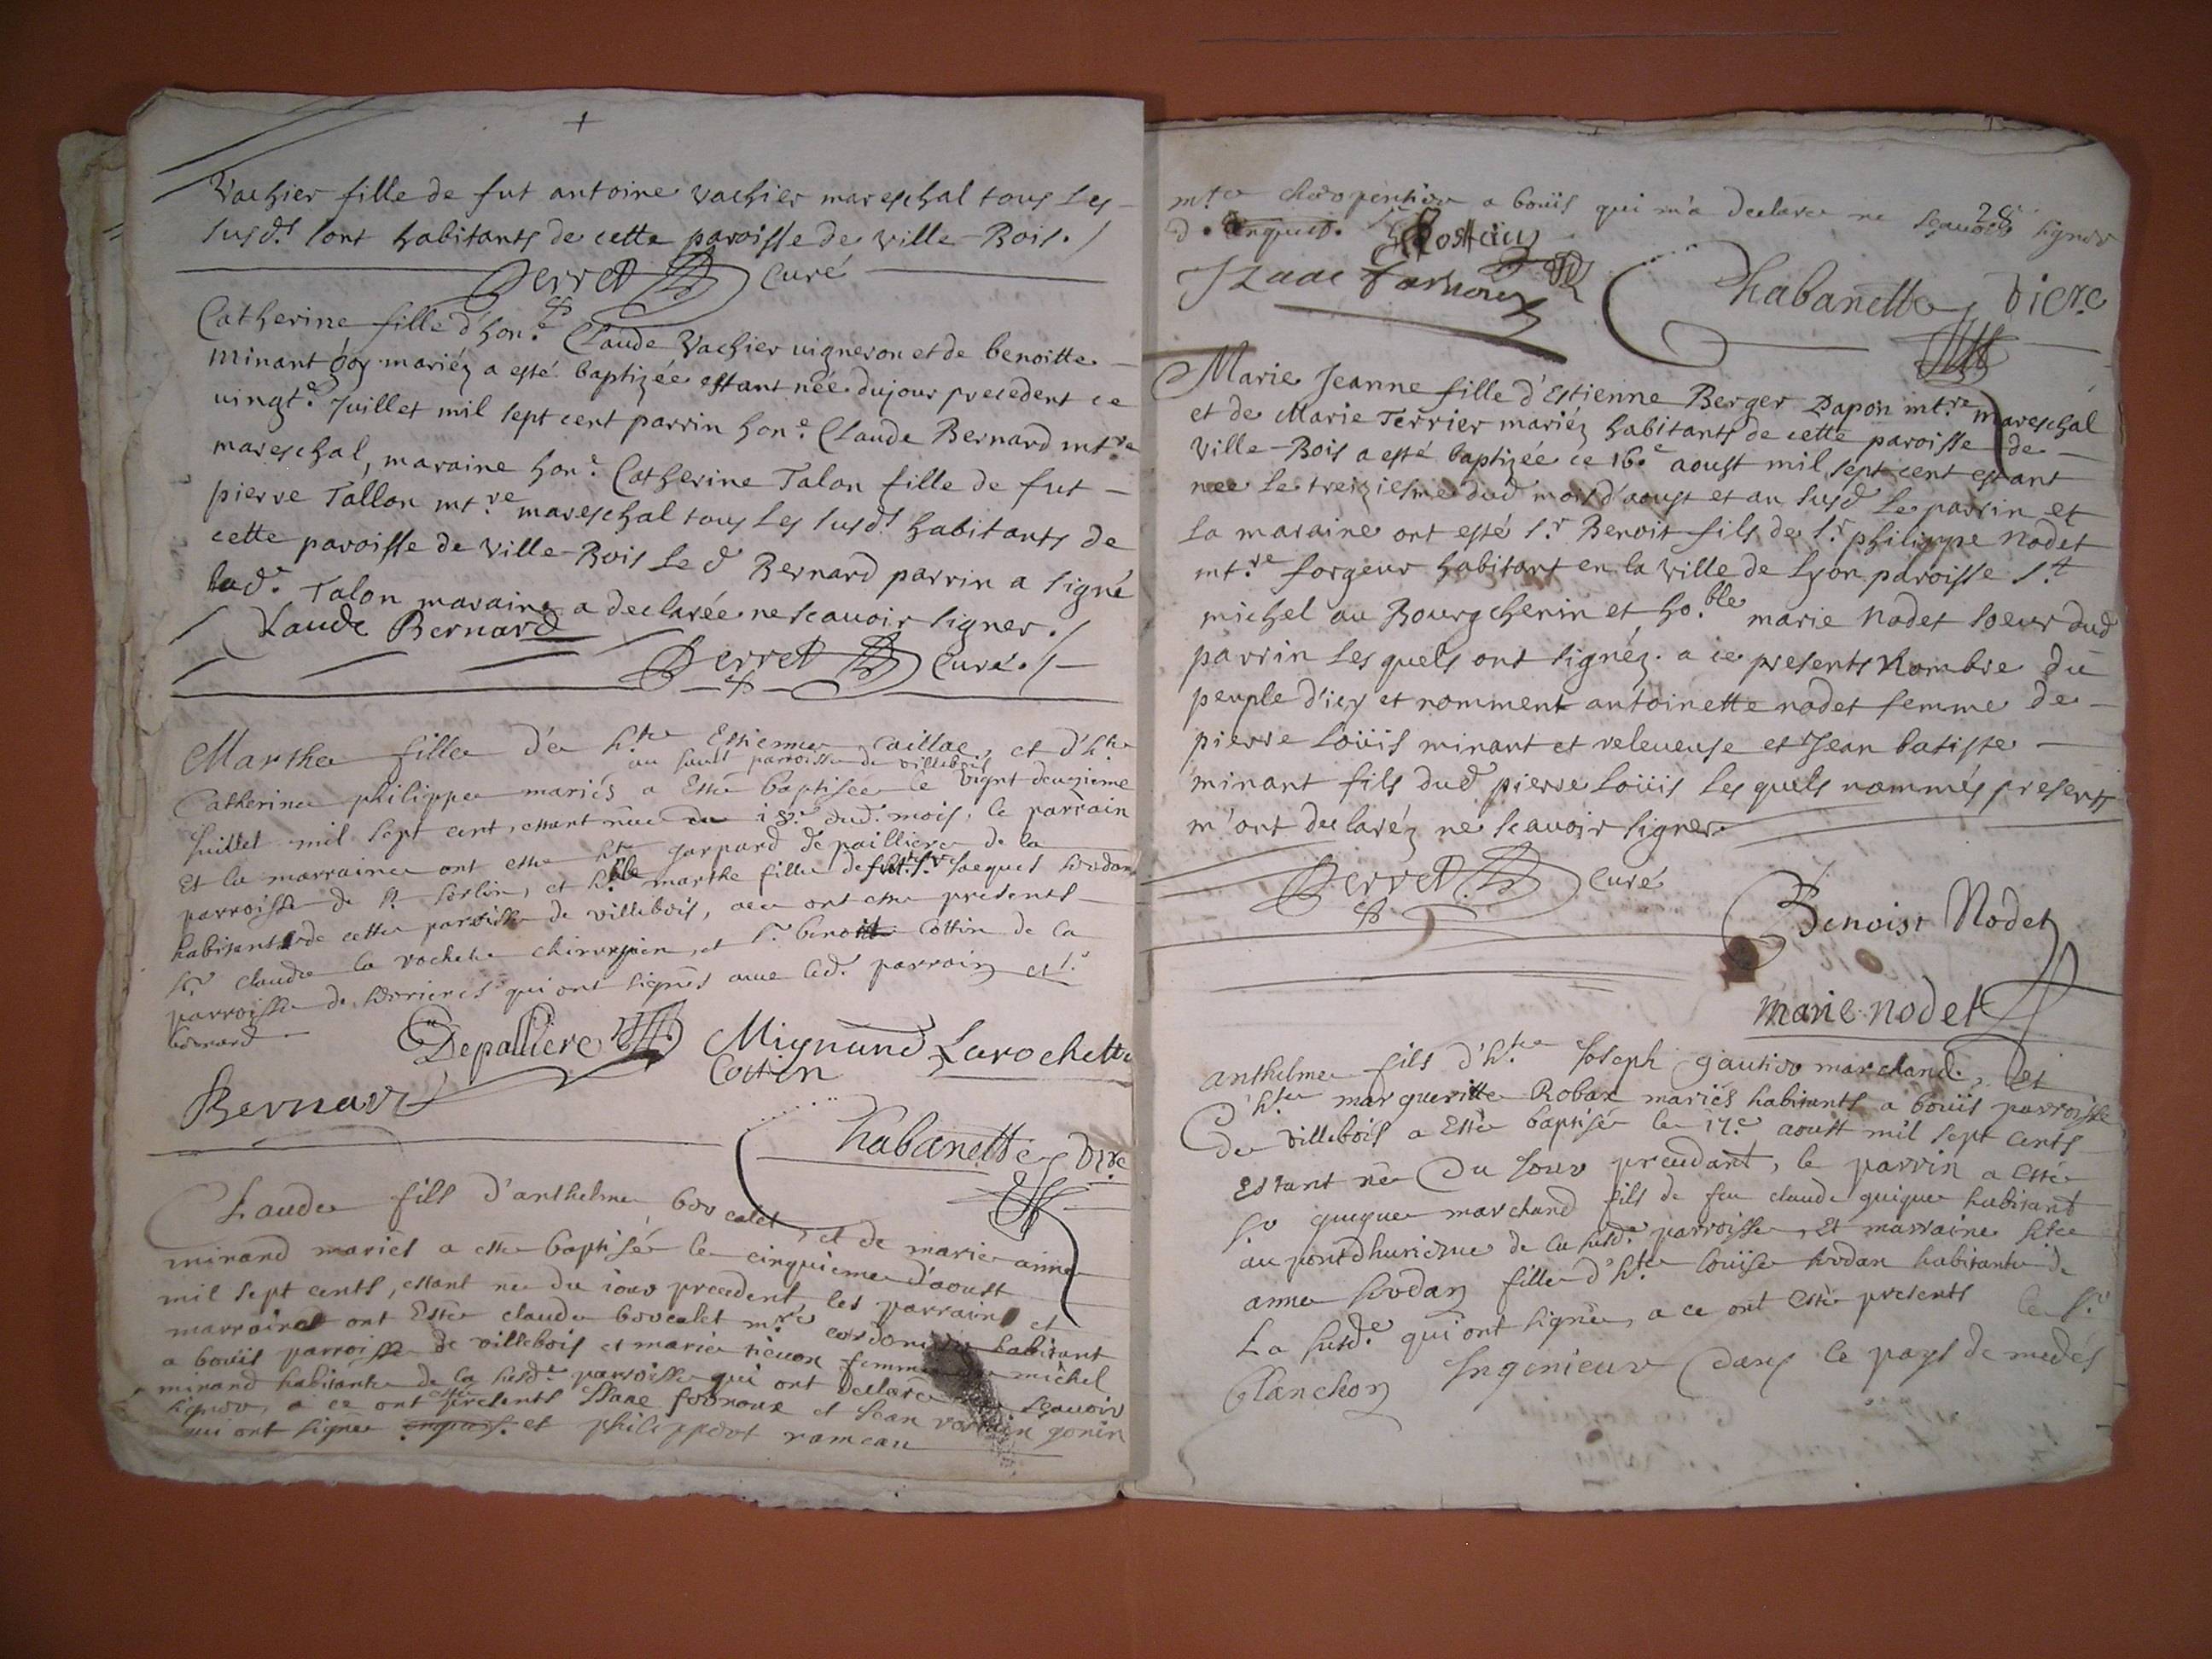 Vachier fille de fut antoine vachier mareschal tous les
susd.s sont habitants de cette paroisse de Ville-Bois. /
Perret Curé
Catherine fille d'hon.e Claude Vachier vigneron et de benoitte
Minant mariéz a esté baptizée estant née du jour precedent ce
vingt.e Juillet mil sept cent parrin hon.e Claude Bernard mt.re
mareschal, maraine hon.e Catherine Talon fille de fut
pierre Tallon mt.re mareschal tous les susd.s habitants de
cette paroisse de Ville-Bois Le d Bernard parrin a signé
lad.e Talon maraine a declarée ne scavoir signer. /
Claude Bernard
Perret Curé. /
Marthe fille de h.te Estienne Caillat, et d'h.te
au sault parroisse de villebois
Catherine philippe mariés a Esté baptisée le vignt deuzieme
Juillet mil sept cent, estant née du 18.e dud. mois, le parrain
Et la marraine ont esté gaspard depailliere de la
parroisse de s.t Sorlin, et marthe fille de Jacques
habitants de cette parroisse de villebois, ont este presents
s.r claude la rochette chirurgien, et s.r benoit Cottin de la
parroisse de serrieres qui ont signés avec led. parrain et s.r
bernard
Depalliere Mignand Larochette
Cottin
Bernard
Chabanettes Vi.re
Claude fils d'anthelme boucalet, et de marie anne
minand mariés a esté baptisé le cinquieme d'aoust
mil sept cents, estant né du iour precedent les parrains et
marraines ont Esté claude boucalet m.re cordonnier habitant
a bouis parroisse de villebois et marie femme michel
minand habitante de la susd.e parroisse qui ont declaré scavoir
signer, a ce ont esté presents Isaac fornoux et Jean gonin
qui ont signé enquis. et philippert rameau
28
m.tre charpentier a bouis qui m'a declare ne scavoir signer
d. enquis. Rostain
Izaac farnoux
Chabanettes Vicre
Marie Jeanne fille d'Estienne Berger Dapon mt.re mareschal
et de Marie Terrier mariéz habitants de cette paroisse de
Ville-Bois a esté baptizée ce 16.e aoust mil sept cent estant
née le treiziesme dud mois d'aoust et an susd Le parrin et
La maraine ont esté s.r Benoit fils de s.r philippe Nodet
mt.re forgeur habitant en la Ville de Lyon paroisse s.t
michel au Bourgchenin et ho.ble marie Nodet soeur dud
parrin Les quels ont signéz. a ce presents Nombre du
peuple d'icy et nomment antoinette nodet femme de
pierre Loüis minant et releveuse et Jean batiste
minant fils dud pierre Loüis Les quels nommés presents
m'ont declaréz ne scavoir signer
Perret Curé
Benoist Nodet
marie nodet
anthelme fils d'h.te Joseph gautier marchand, et
d'h.te margueritte Robax mariés habitants a bouis parroisse
de villebois a Esté baptisé le 17.e aoust mil sept cents
Estant né du Jour precedant, le parrin a esté
s.r guigue marchand fils de feu claude guigue habitant
au pont de la susd.e parroisse, et marraine
anne Jordan fille d'h.te Louise Jordan habitante de
La susd.e qui ont signé, a ce ont esté presents le s.r
Planchon Ingenieur dans le pays de